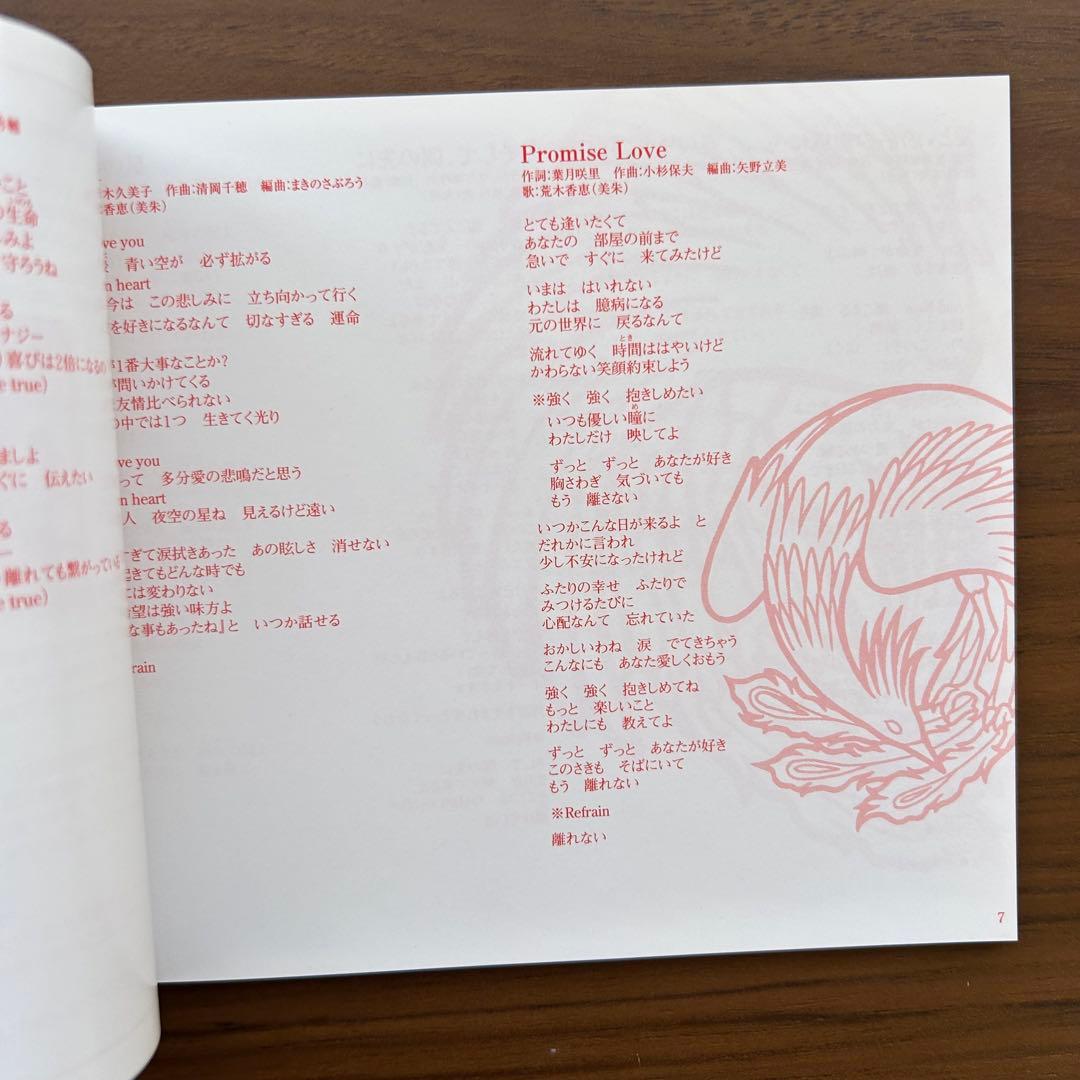 こと
生命
みよ
守ろうね
る
ナジー
喜びは2倍になるの
true)
ましよ
ぐに　伝えたい
る
離れても繋がっている
true)
木久美子　作曲：清岡千穂　編曲：まきのさぶろう
香恵（美朱）
ve you
青い空が　必ず拡がる
n heart
今は　この悲しみに　立ち向かって行く
を好きになるなんて　切なすぎる　運命
1番大事なことか?
問いかけてくる
友情比べられない
中では1つ　生きてく光り
ve you
って　多分愛の悲鳴だと思う
n heart
人　夜空の星ね　見えるけど遠い
ぎて涙拭きあった　あの眩しさ　消せない
起きてもどんな時でも
には変わりない
希望は強い味方よ
な事もあったね』と　いつか話せる
rain
Promise Love
作詞：葉月咲里　作曲：小杉保夫　編曲：矢野立美
歌：荒木香恵（美朱）
とても逢いたくて
あなたの　部屋の前まで
急いで　すぐに　来てみたけど
いまは　はいれない
わたしは　臆病になる
元の世界に　戻るなんて
とき
流れてゆく　時間ははやいけど
かわらない笑顔約束しよう
※強く　強く　抱きしめたい
め
いつも優しい瞳に
わたしだけ　映してよ
ずっと　ずっと　あなたが好き
胸さわぎ　気づいても
もう　離さない
いつかこんな日が来るよ　と
だれかに言われ
少し不安になったけれど
ふたりの幸せ　ふたりで
みつけるたびに
心配なんて　忘れていた
おかしいわね　涙　でてきちゃう
こんなにも　あなた愛しくおもう
強く　強く　抱きしめてね
もっと　楽しいこと
わたしにも　教えてよ
ずっと　ずっと　あなたが好き
このさきも　そばにいて
もう　離れない
※Refrain
離れない
7